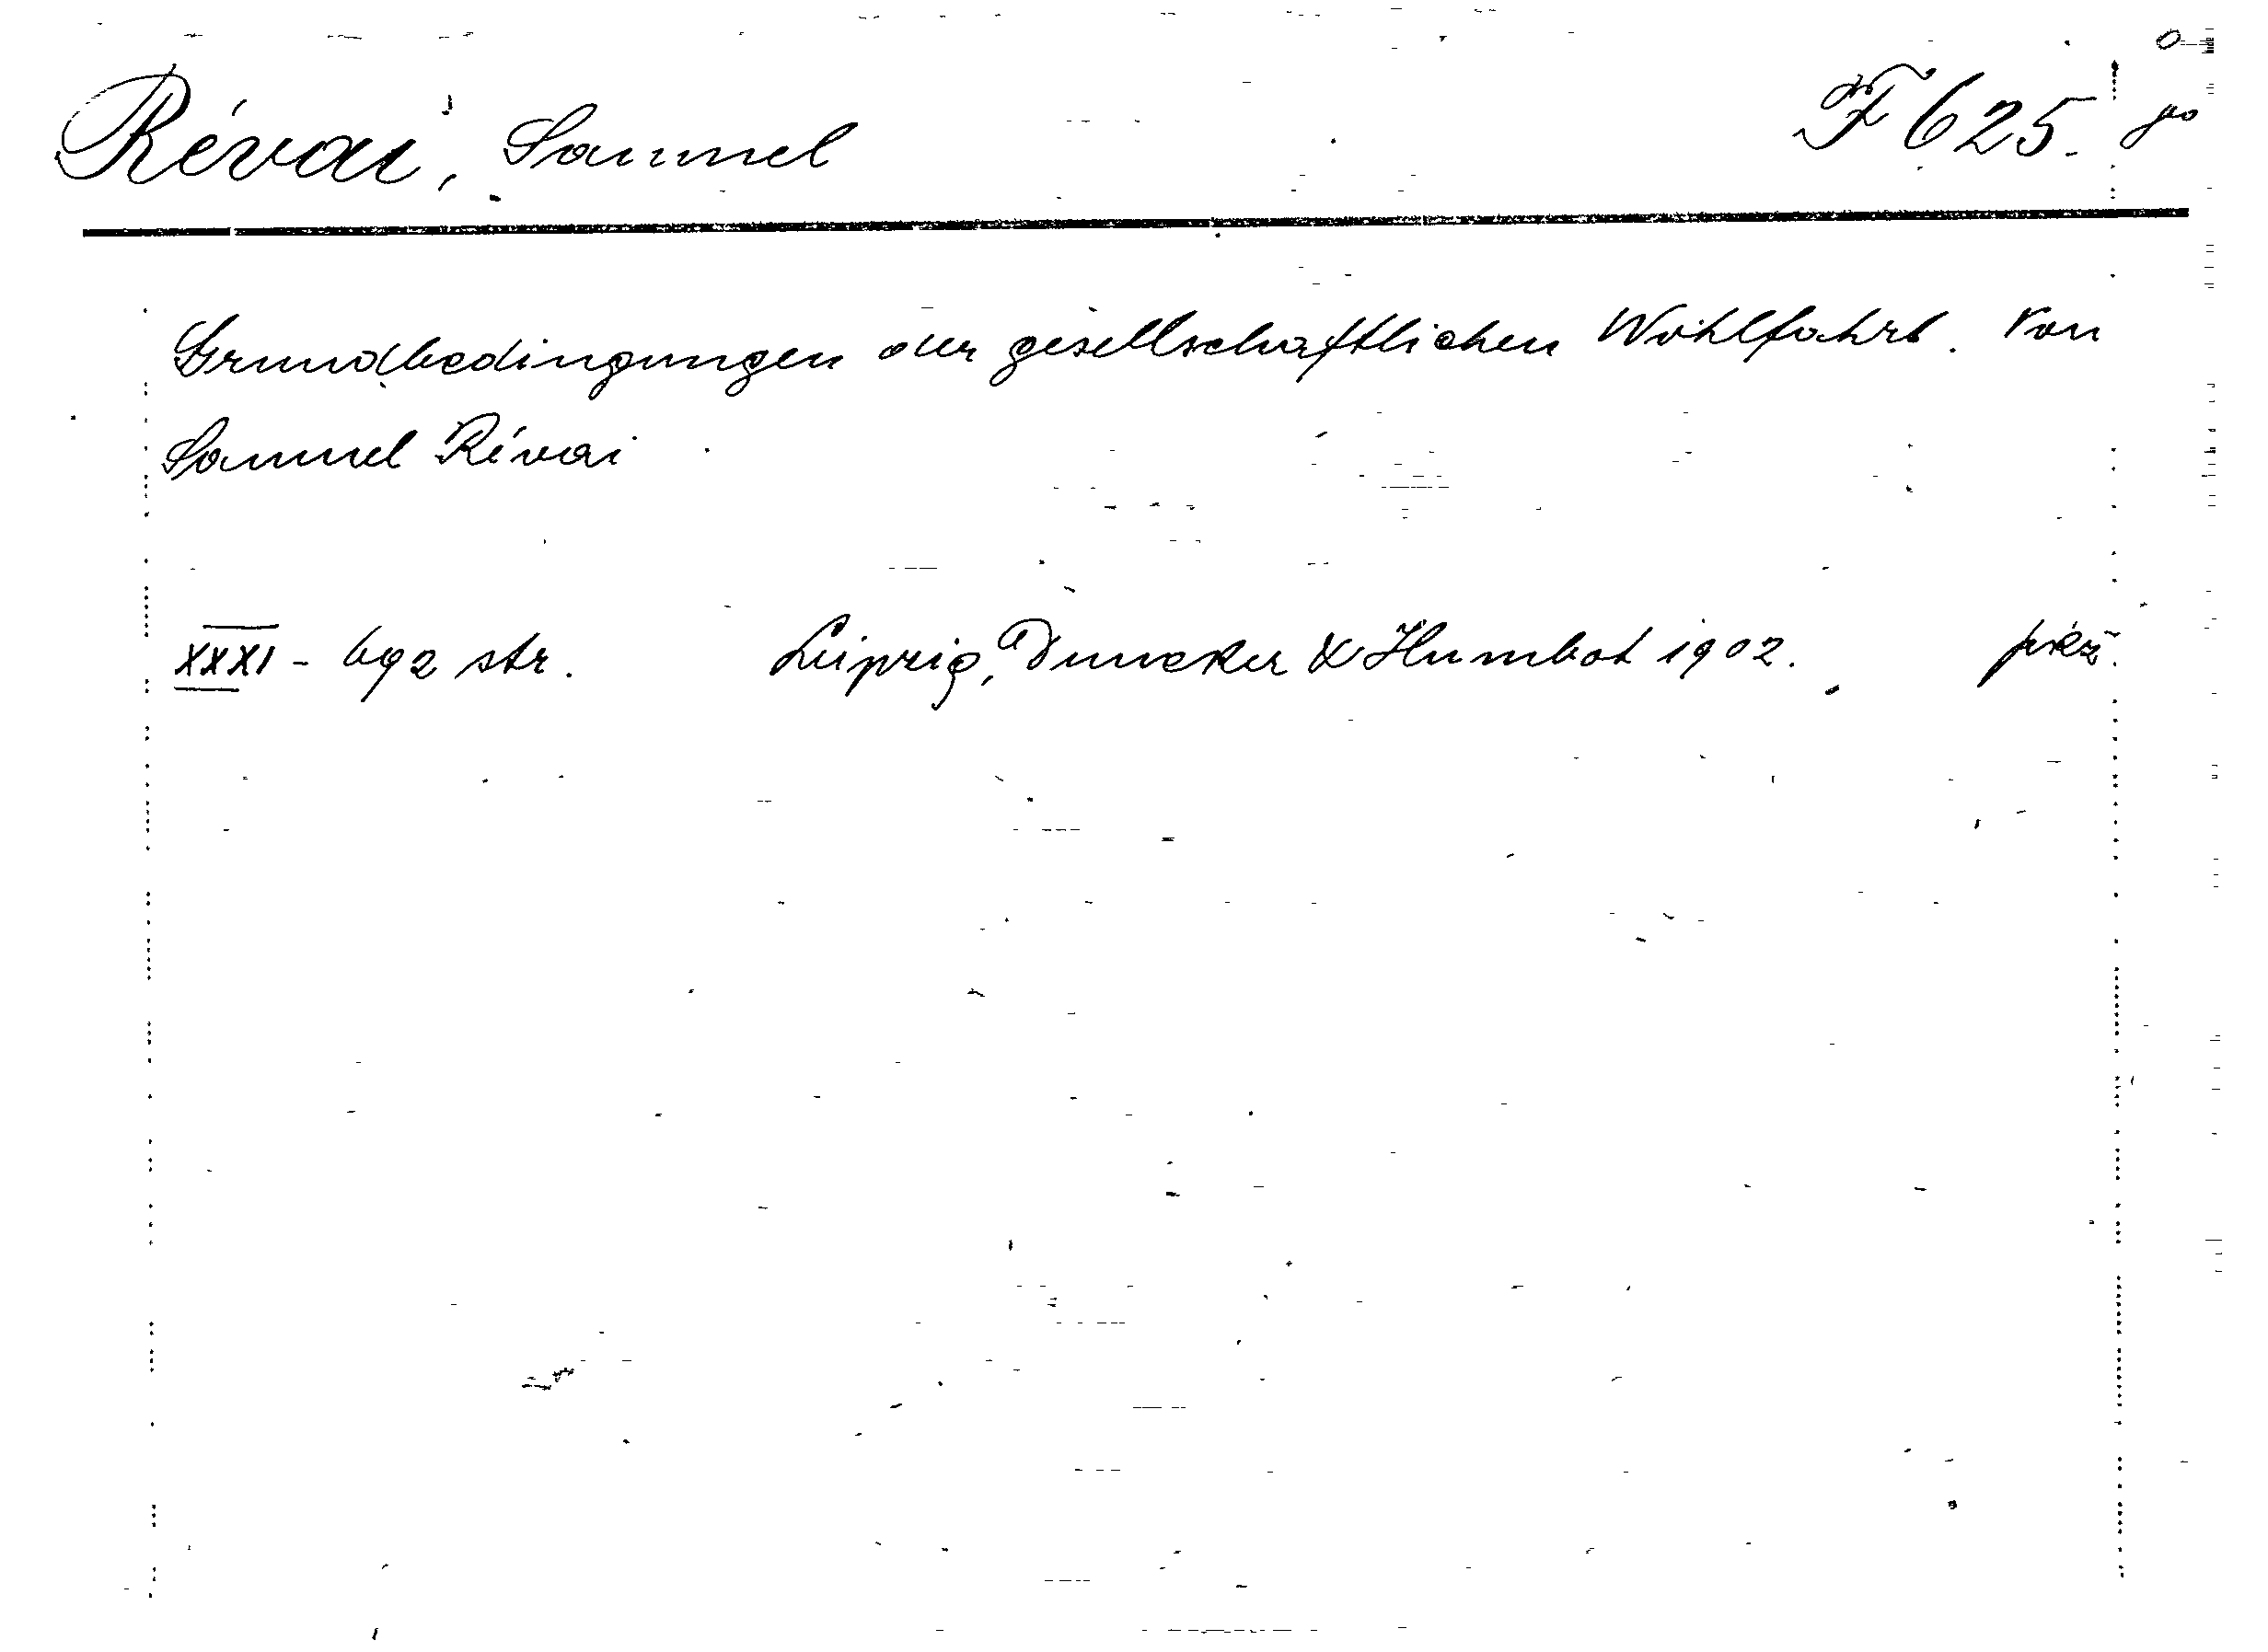 Révai, Samuel F 625.
Grundbedingungen der gesellschaftlichen Wohlfahrt. Von
Samuel Révai
XXXI - 692 str. Leipzig, Duncker & Humbot 1902.